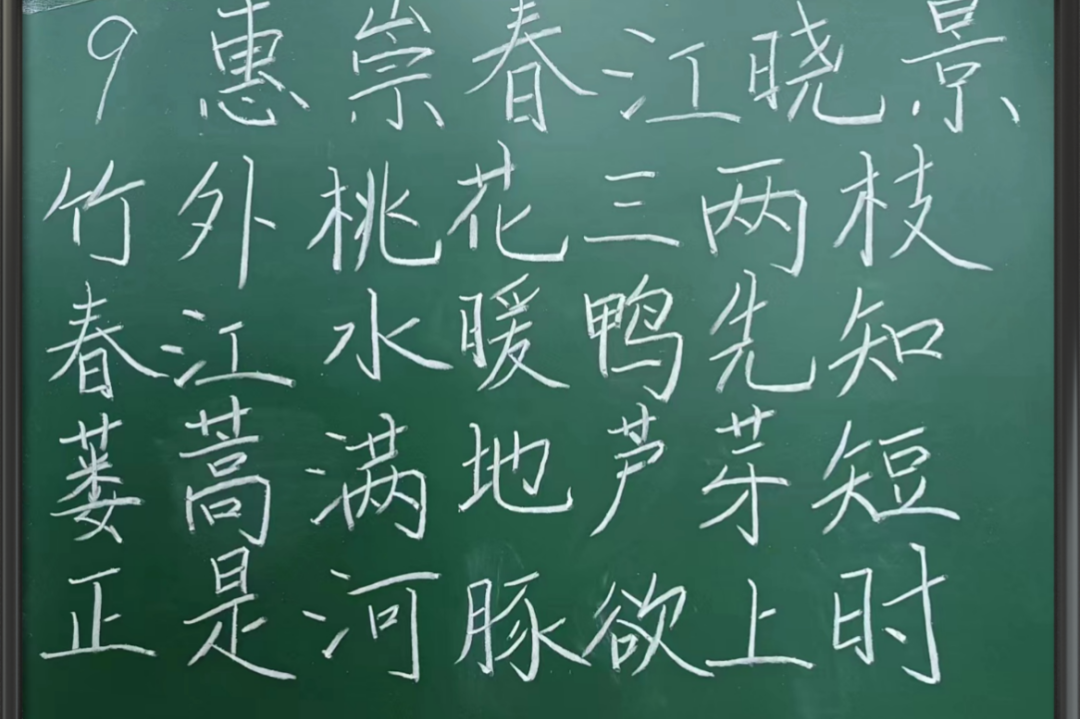 9 惠崇春江晓景
竹外桃花三两枝
春江水暖鸭先知
蒌蒿满地芦芽短
正是河豚欲上时